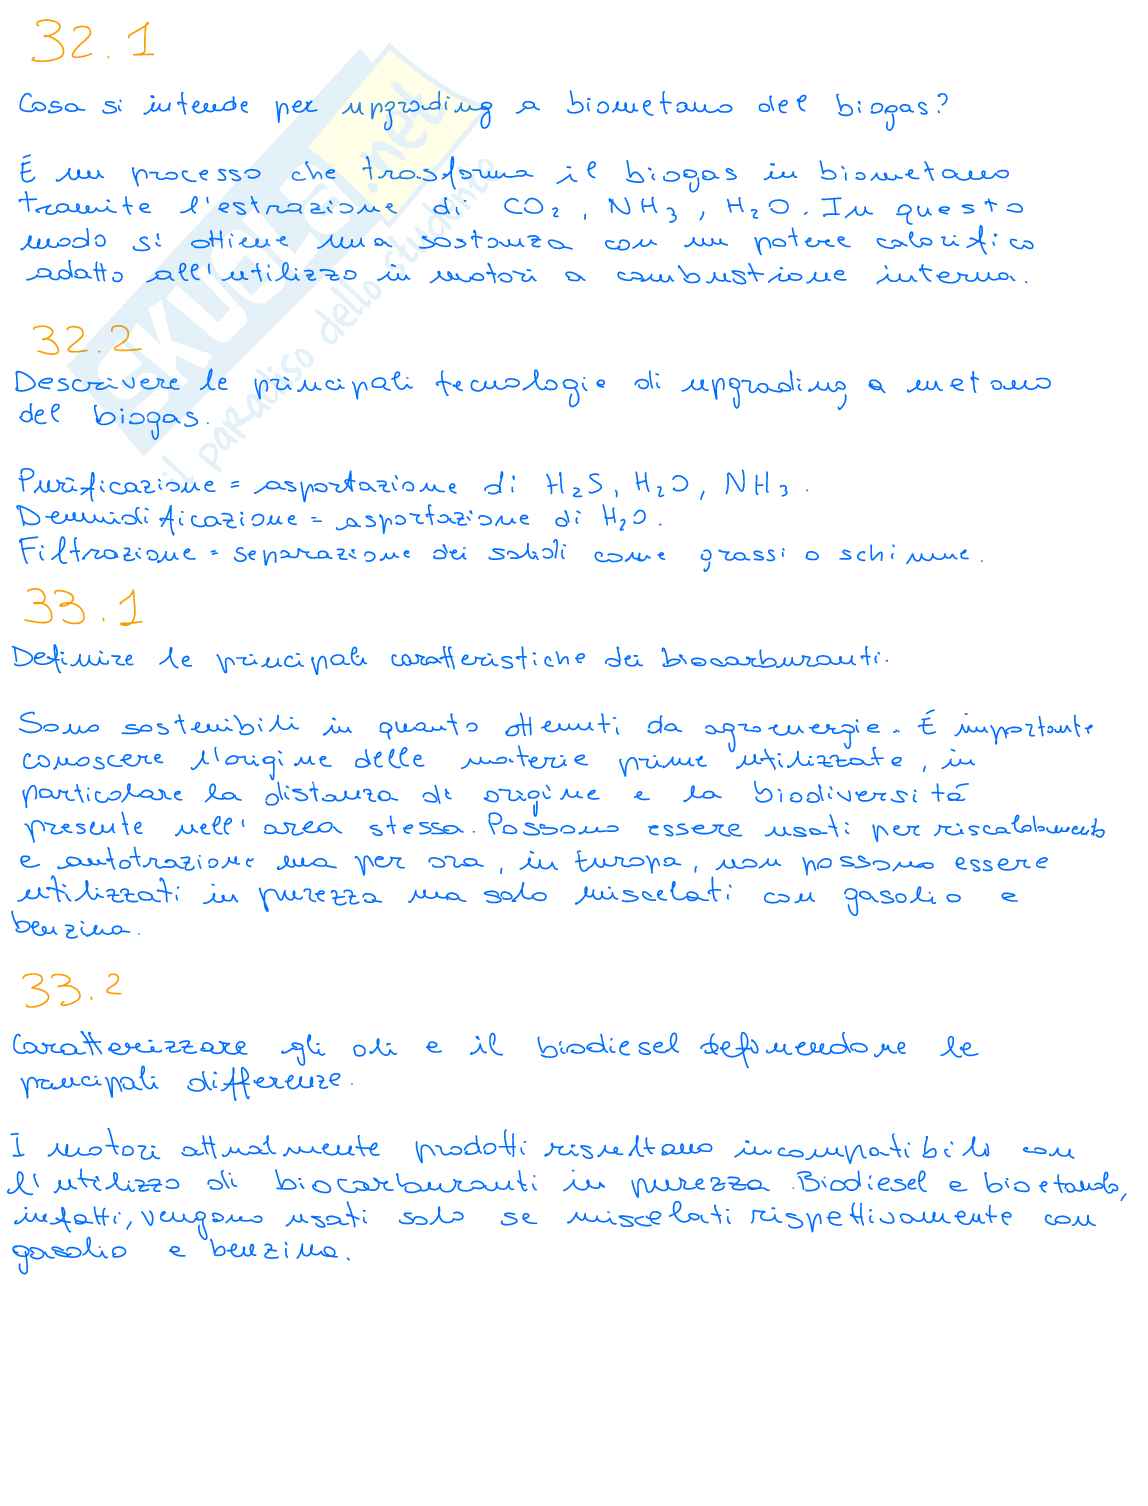 32.1
Cosa si intende per upgrading a biometano del biogas?
É un processo che trasforma il biogas in biometano
tramite l'estrazione di CO₂, NH₃, H₂O. In questo
modo si ottiene una sostanza con un potere calorifico
adatto all'utilizzo in motori a combustione interna.
32.2
Descrivere le principali tecnologie di upgrading a metano
del biogas.
Purificazione = asportazione di H₂S, H₂O, NH₃.
Deumidificazione = asportazione di H₂O.
Filtrazione = separazione dei solidi come grassi o schiume.
33.1
Definire le principali caratteristiche dei biocarburanti.
Sono sostenibili in quanto ottenuti da agroenergie. É importante
conoscere l'origine delle materie prime utilizzate, in
particolare la distanza di origine e la biodiversitá
presente nell'area stessa. Possono essere usati per riscaldamento
e autotrazione ma per ora, in Europa, non possono essere
utilizzati in purezza ma solo miscelati con gasolio e
benzina.
33.2
Caratterizzare gli oli e il biodiesel definendone le
principali differenze.
I motori attualmente prodotti risultano incompatibili con
l'utilizzo di biocarburanti in purezza. Biodiesel e bioetanolo,
infatti, vengono usati solo se miscelati rispettivamente con
gasolio e benzina.
SKUOLA.net
il paradiso dello studente